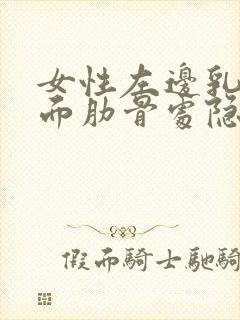 女性左邊乳
而肋骨處隐
假而騎士馳騎